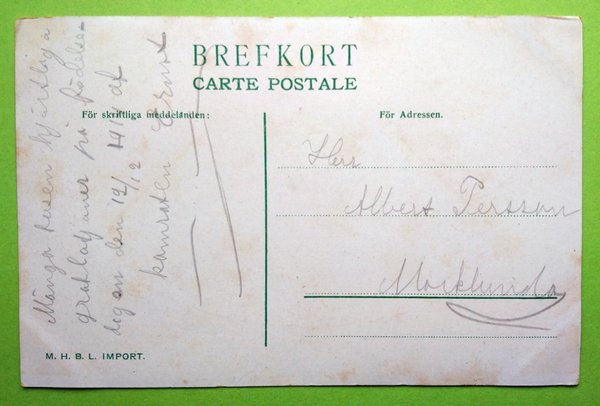 BREFKORT
CARTE POSTALE
För skriftliga meddelanden:
För Adressen.
Många tusen hjärtliga
gratlatjuner på födelse-
degen den 12/12 1914 af
kamraten Ernst
Herr
Albert Persson
Marklunda
M. H. B. L. IMPORT.